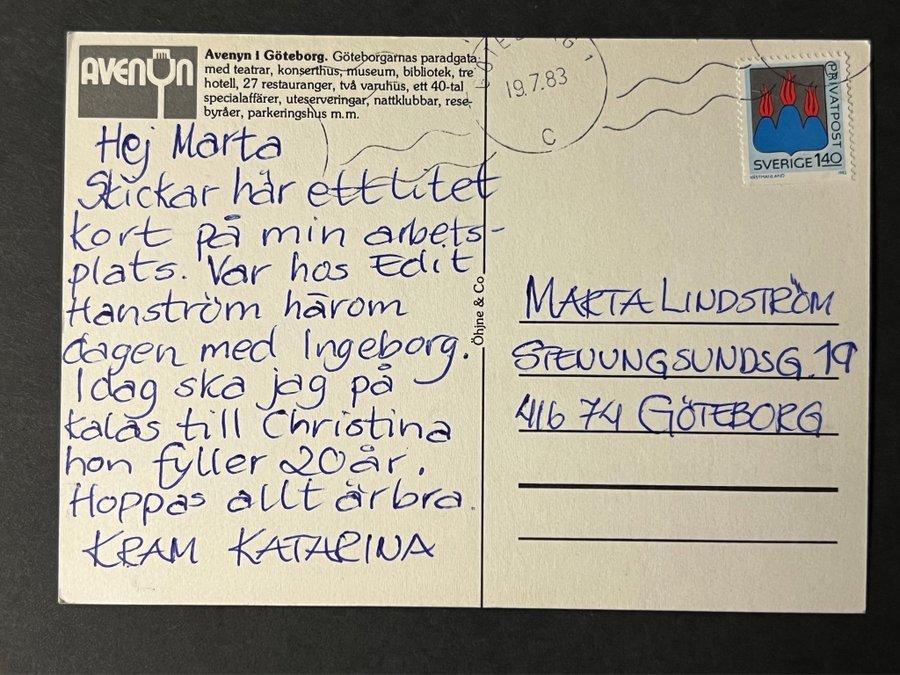 AVENYN
Avenyn i Göteborg. Göteborgarnas paradgata
med teatrar, konserthus, museum, bibliotek, tre
hotell, 27 restauranger, två varuhus, ett 40-tal
specialaffärer, uteserveringar, nattklubbar, rese-
byråer, parkeringshus m.m.
Hej Marta
Skickar här ett litet
kort på min arbets-
plats. Var hos Edit
Hanström härom
dagen med Ingeborg.
Idag ska jag på
kalas till Christina
hon fyller 20 år.
Hoppas allt är bra.
KRAM KATARINA
Öhjne & Co
19.7.83
C
PRIVATPOST
SVERIGE 140
VÄSTMANLAND
MARTA LINDSTRÖM
STENUNGSUNDSG. 19
416 74 GÖTEBORG